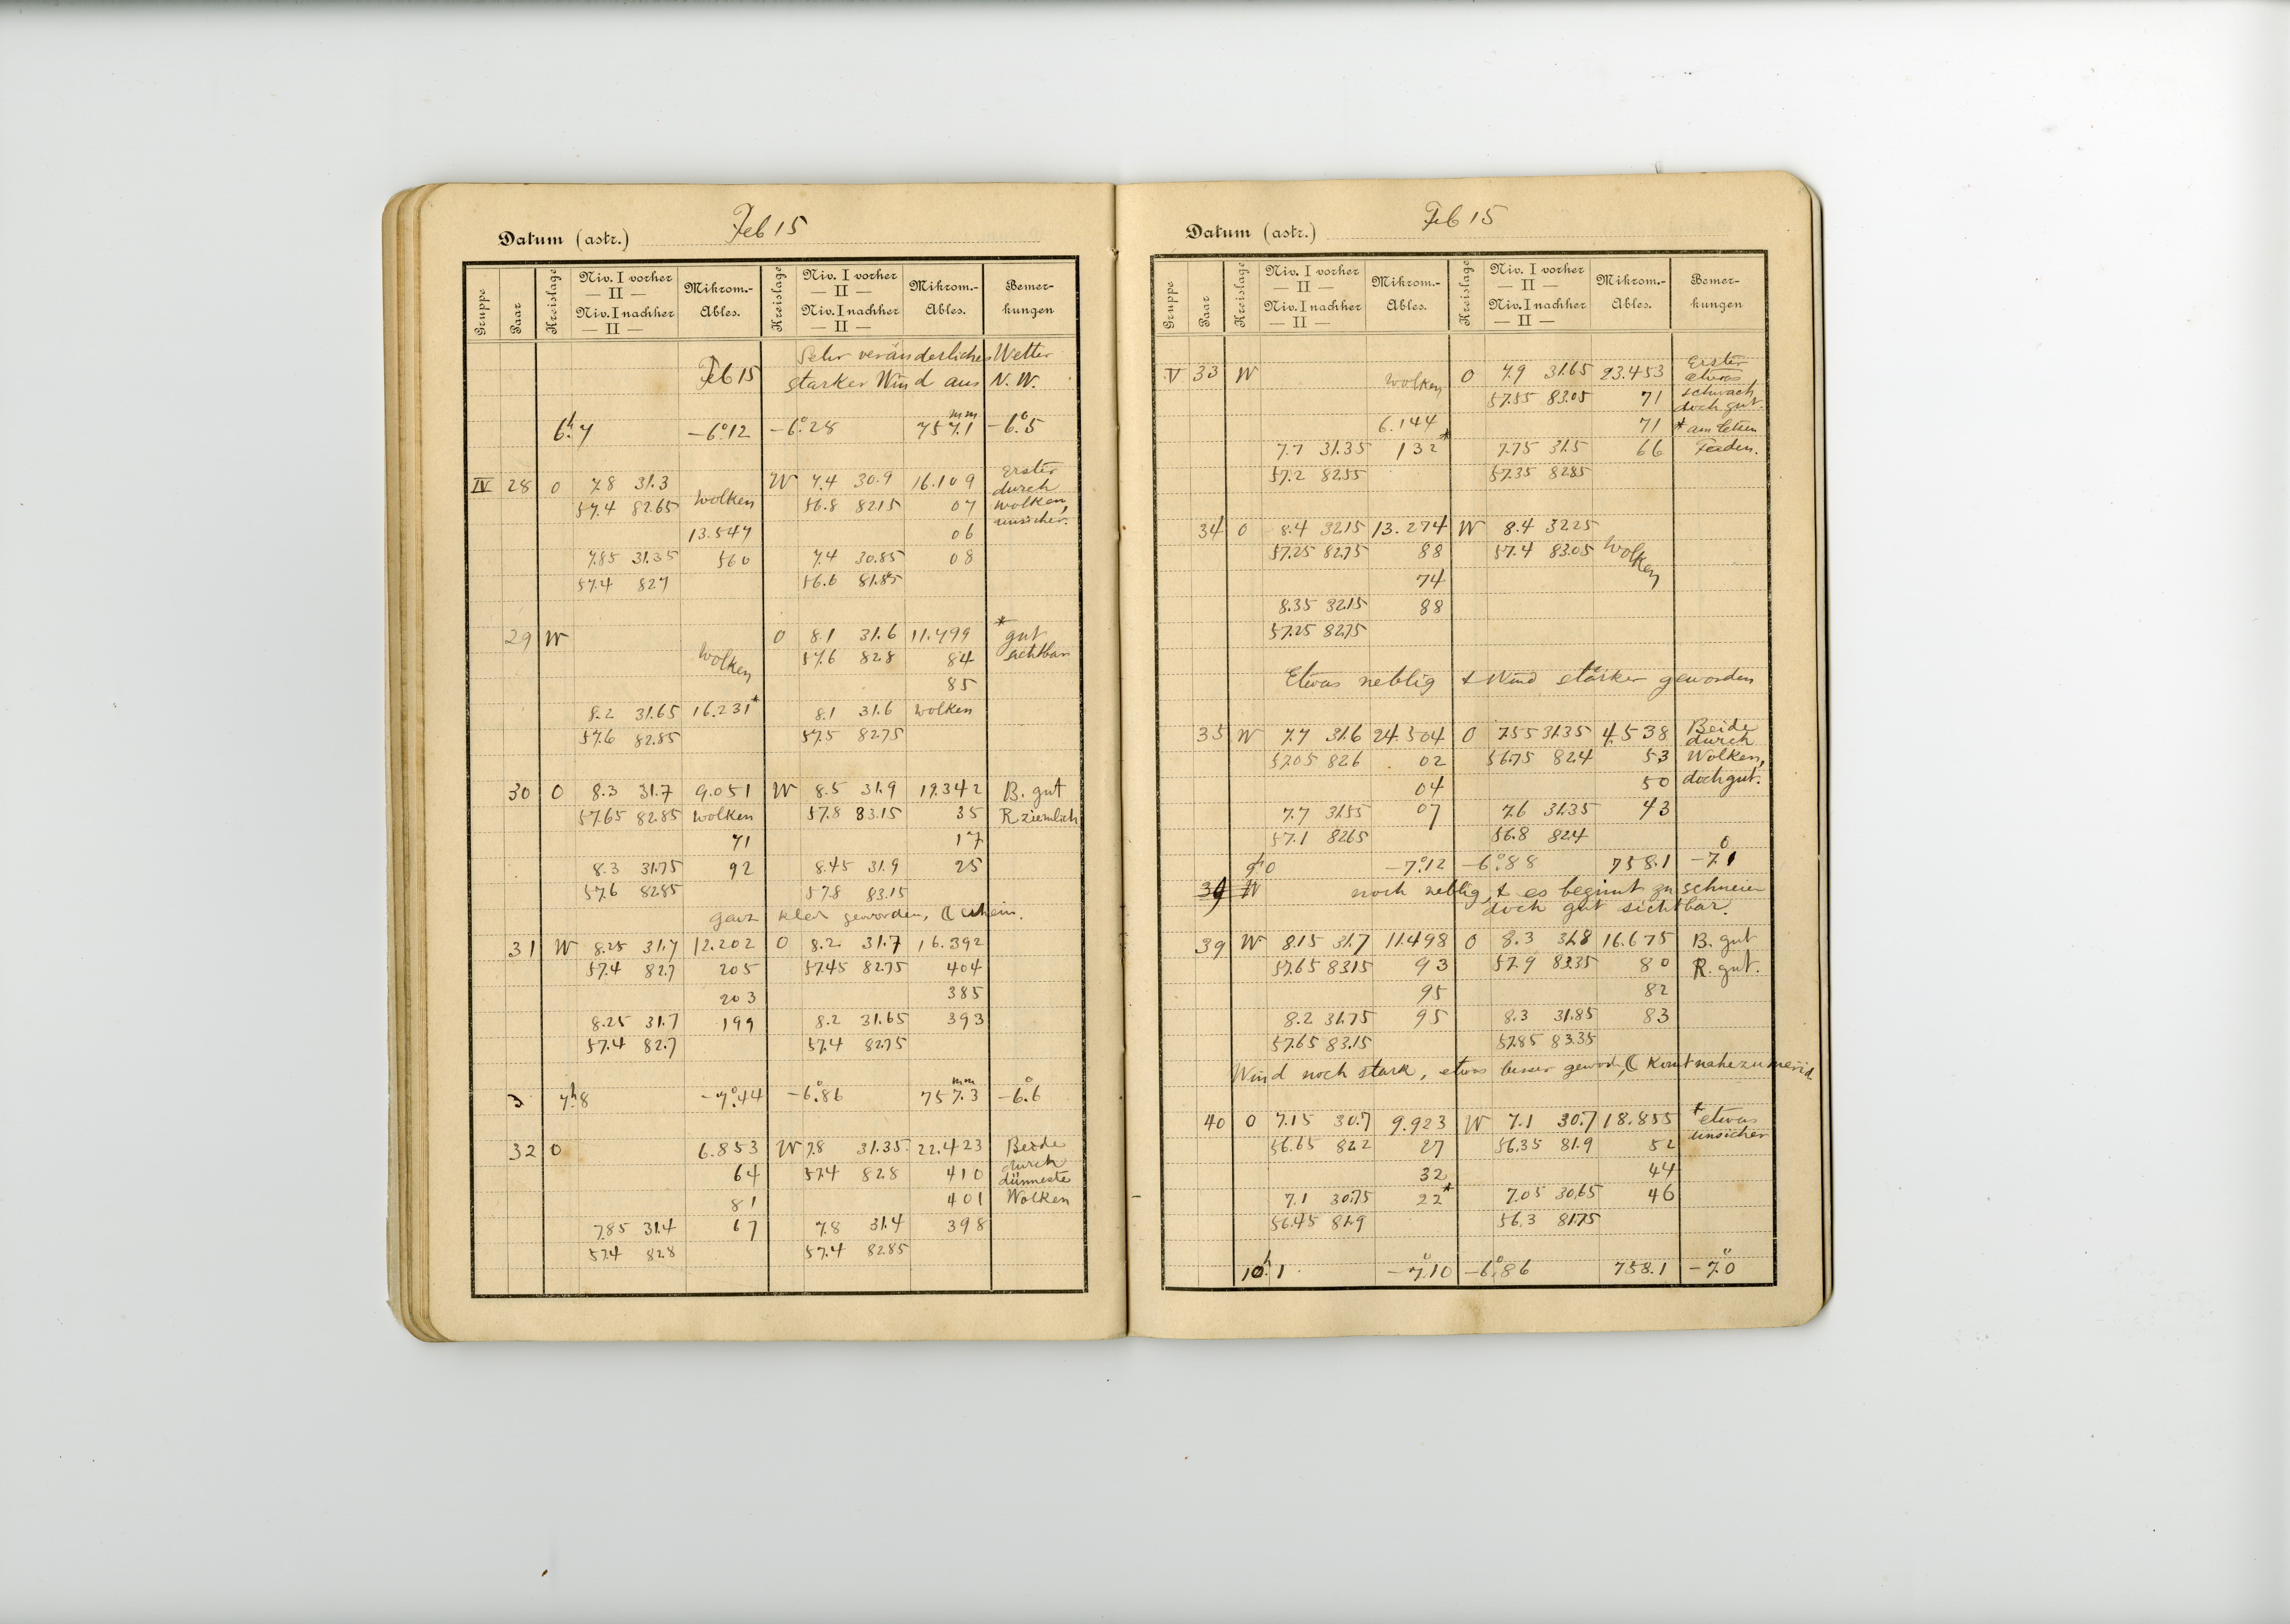 Datum (astr.) Feb 15
Gruppe Paar Kreislage Niv. I vorher — II — Niv. I nachher — II — Mikrom.-Ables. Kreislage Niv. I vorher — II — Niv. I nachher — II — Mikrom.-Ables. Bemer-kungen
Sehr veränderliches Wetter
Feb 15 starker Wind aus N.W.
6h.7 -6°.12 -6°.28 757.1 mm -6°.5
IV 28 O 7.8 31.3 Wolken W 7.4 30.9 16.109 Erster
57.4 82.65 56.8 82.15 07 durch
13.547 06 Wolken,
7.85 31.35 560 7.4 30.85 08 unsicher.
57.4 82.7 56.6 81.85
29 W Wolken O 8.1 31.6 11.499 * gut
57.6 82.8 84 sichtbar
85
8.2 31.65 16.231* 8.1 31.6 Wolken
57.6 82.85 57.5 82.75
30 O 8.3 31.7 9.051 W 8.5 31.9 19.342 B. gut
57.65 82.85 Wolken 57.8 83.15 35 R ziemlich
71 17
8.3 31.75 92 8.45 31.9 25
57.6 82.85 57.8 83.15
ganz klar geworden, ☾ schein.
31 W 8.25 31.7 12.202 O 8.2 31.7 16.392
57.4 82.7 205 57.45 82.75 404
203 385
8.25 31.7 199 8.2 31.65 393
57.4 82.7 57.4 82.75
3 7h.8 -7°.44 -6°.86 757.3 mm -6°.6
32 O 6.853 W 7.8 31.35 22.423 Beide
64 57.4 82.8 410 durch
81 401 dünneste
7.85 31.4 67 7.8 31.4 398 Wolken
57.4 82.8 57.4 82.85
Datum (astr.) Feb 15
Gruppe Paar Kreislage Niv. I vorher — II — Niv. I nachher — II — Mikrom.-Ables. Kreislage Niv. I vorher — II — Niv. I nachher — II — Mikrom.-Ables. Bemer-kungen
V 33 W Wolken O 7.9 31.65 23.453 Erster
57.55 83.05 71 etwas schwach
6.144 71 doch gut.
7.7 31.35 132* 7.75 31.5 66 * am letzten
57.2 82.55 57.35 82.85 Faden.
34 O 8.4 32.15 13.274 W 8.4 32.25
57.25 82.75 88 57.4 83.05 Wolken
74
8.35 32.15 88
57.25 82.75
Etwas neblig & Wind stärker geworden
35 W 7.7 31.6 24.504 O 7.55 31.35 4.538 Beide
57.05 82.6 02 56.75 82.4 53 durch
04 50 Wolken,
7.7 31.55 07 7.6 31.35 43 doch gut.
57.1 82.65 56.8 82.4
9h.0 -7°.12 -6°.88 758.1 -7°.1
39 W noch neblig, & es beginnt zu schneien
doch gut sichtbar.
39 W 8.15 31.7 11.498 O 8.3 31.8 16.675 B. gut
57.65 83.15 93 57.9 83.35 80 R. gut.
95 82
8.2 31.75 95 8.3 31.85 83
57.65 83.15 57.85 83.35
Wind noch stark, etwas besser geword., ☾ komt nahe zu merid
40 O 7.15 30.7 9.923 W 7.1 30.7 18.855 * etwas
56.65 82.2 27 56.35 81.9 52 unsicher
32 44
7.1 30.75 22* 7.05 30.65 46
56.45 81.9 56.3 81.75
10h.1 -7°.10 -6°.86 758.1 -7°.0